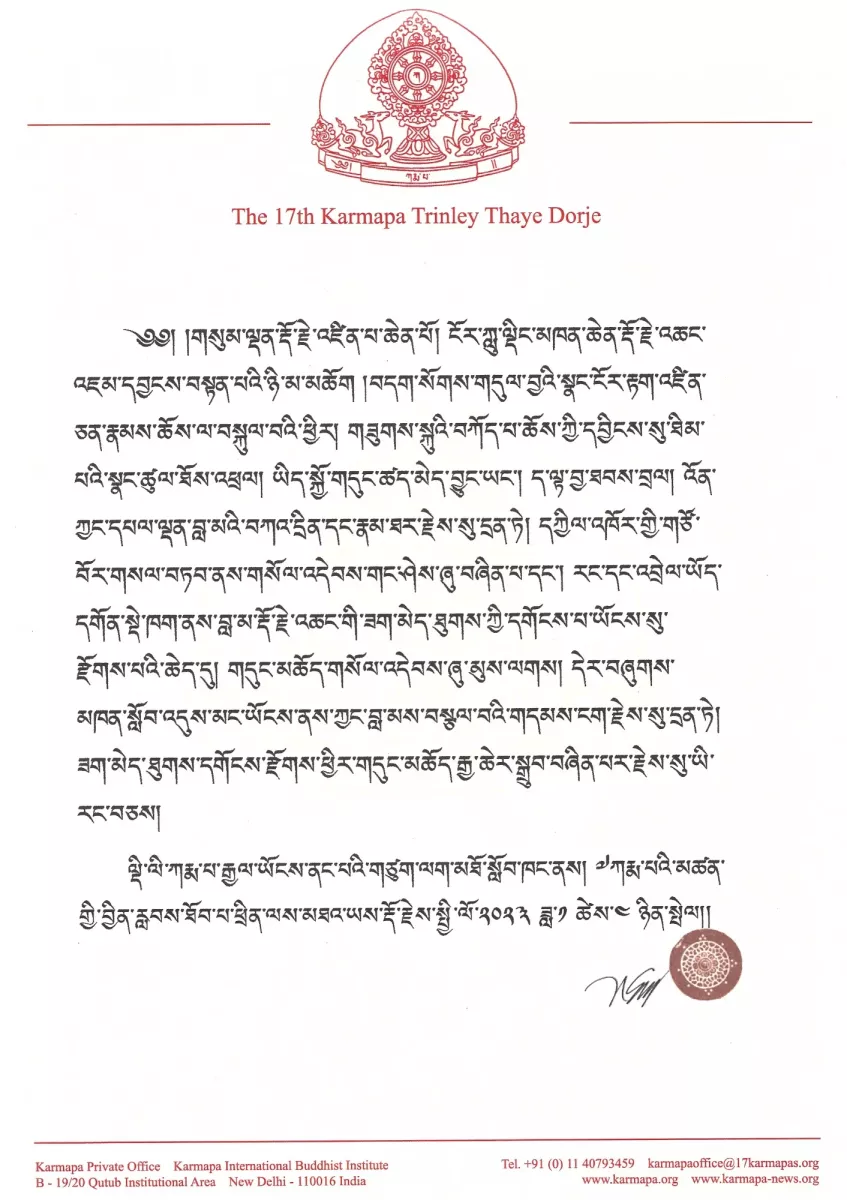 ཀརྨ་པ
The 17th Karmapa Trinley Thaye Dorje
༄༅། །གསུམ་ལྡན་རྡོ་རྗེ་འཛིན་པ་ཆེན་པོ། ངོར་ཀླུ་ལྡིང་མཁན་ཆེན་རྡོ་རྗེ་འཆང་
འཇམ་དབྱངས་བསྟན་པའི་ཉི་མ་མཆོག །བདག་སོགས་གདུལ་བྱའི་སྣང་ངོར་རྟག་འཛིན་
ཅན་རྣམས་ཆོས་ལ་བསྐུལ་བའི་ཕྱིར། གཟུགས་སྐུའི་བཀོད་པ་ཆོས་ཀྱི་དབྱིངས་སུ་ཐིམ་
པའི་སྣང་ཚུལ་ཐོས་འཕྲལ། ཡིད་སྐྱོ་གདུང་ཚད་མེད་བྱུང་ཡང་། ད་ལྟ་བྱ་ཐབས་བྲལ། འོན་
ཀྱང་དཔལ་ལྡན་བླ་མའི་བཀའ་དྲིན་དང་རྣམ་ཐར་རྗེས་སུ་དྲན་ཏེ། དཀྱིལ་འཁོར་གྱི་གཙོ་
བོར་གསལ་བཏབ་ནས་གསོལ་འདེབས་གང་ཤེས་ཞུ་བཞིན་པ་དང་། རང་དང་འབྲེལ་ཡོད་
དགོན་སྡེ་ཁག་ནས་བླ་མ་རྡོ་རྗེ་འཆང་གི་ཟག་མེད་ཐུགས་ཀྱི་དགོངས་པ་ཡོངས་སུ་
རྫོགས་པའི་ཆེད་དུ། གདུང་མཆོད་གསོལ་འདེབས་ཞུ་མུས་ལགས། དེར་བཞུགས་
མཁན་སློབ་འདུས་མང་ཡོངས་ནས་ཀྱང་བླ་མས་བསྩལ་བའི་གདམས་ངག་རྗེས་སུ་དྲན་ཏེ།
ཟག་མེད་ཐུགས་དགོངས་རྫོགས་ཕྱིར་གདུང་མཆོད་རྒྱ་ཆེར་སྒྲུབ་བཞིན་པར་རྗེས་སུ་ཡི་
རང་བཅས།
ལྡི་ལི་ཀརྨ་པ་རྒྱལ་ཡོངས་ནང་པའི་གཙུག་ལག་མཐོ་སློབ་ཁང་ནས། ༧ཀརྨ་པའི་མཚན་
གྱི་བྱིན་རླབས་ཐོབ་པ་ཕྲིན་ལས་མཐའ་ཡས་རྡོ་རྗེས་སྤྱི་ལོ་༢༠༢༣ ཟླ་༡ ཚེས་༤ ཉིན་སྤེལ།།
Karmapa Private Office Karmapa International Buddhist Institute
B - 19/20 Qutub Institutional Area New Delhi - 110016 India
Tel. +91 (0) 11 40793459 karmapaoffice@17karmapas.org
www.karmapa.org www.karmapa-news.org